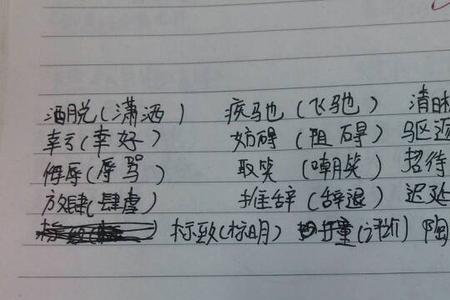 洒脱(潇洒) 疾驰(飞驰) 清
幸亏(幸好) 妨碍(阻碍) 驱
侮辱(辱骂) 取笑(嘲笑) 招待
放肆(肆虐) 推辞(辞退) 迟延
标致(标明) (评价) 陶